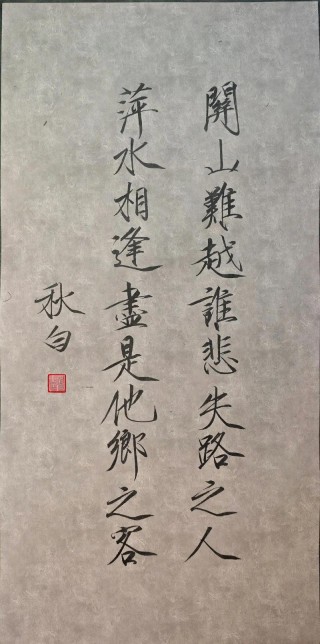 關山難越誰悲失路之人
萍水相逢盡是他鄉之客
秋勻